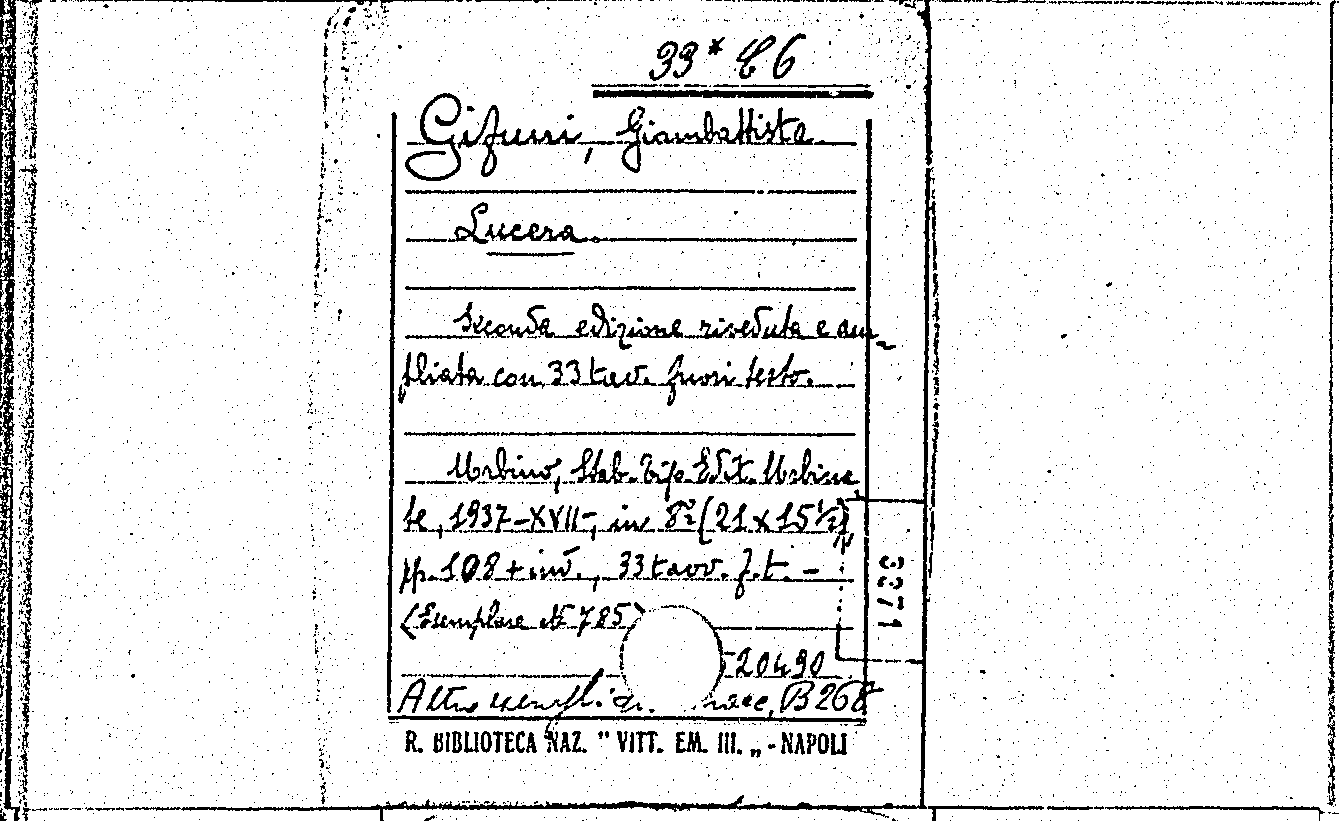 33* C 6
Gifuni, Giambattista
Lucera.
Seconda edizione riveduta e am-
pliata con 33 tav. fuori testo.
Urbino, Stab. Tip. Edit. Urbina
te, 1937-XVII-, in 8º (21 x 15 1/2)
pp. 108 + inv., 33 tavv. f.t. -
(Esemplare N 785)
20490
Altro B 268
R. BIBLIOTECA NAZ. " VITT. EM. III. „ - NAPOLI
3371